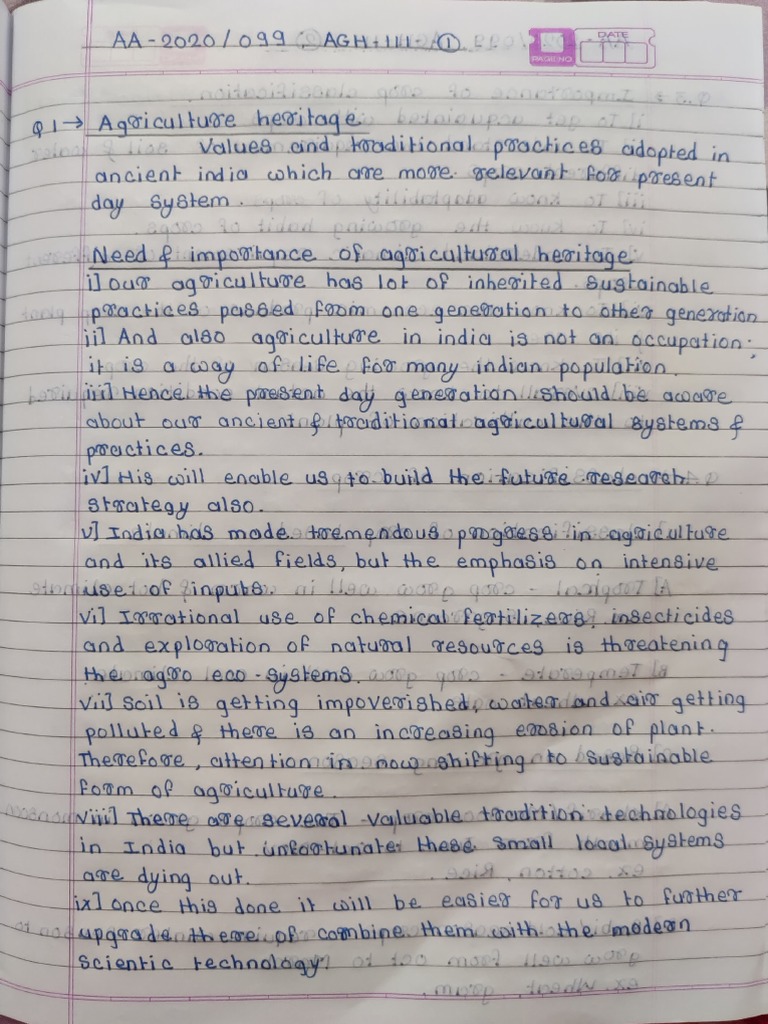 AA-2020/099. AGH-111-①
PAGE NO
DATE
Q1→ Agriculture heritage
Values and traditional practices adopted in
ancient india which are more relevant for present
day system.
Need & importance of agricultural heritage
i] Our agriculture has lot of inherited sustainable
practices passed from one generation to other generation
ii] And also agriculture in india is not an occupation;
it is a way of life for many indian population.
iii] Hence the present day generation should be aware
about our ancient & traditional agricultural systems &
practices.
iv] His will enable us to build the future research
strategy also.
v] India has made tremendous progress in agriculture
and its allied fields, but the emphasis on intensive
use of inputs.
vi] Irrational use of chemical fertilizers, insecticides
and exploration of natural resources is threatening
the agro eco-systems.
vii] Soil is getting impoverished, water and air getting
polluted & there is an increasing erosion of plant.
Therefore, attention in now shifting to sustainable
form of agriculture.
viii] There are several valuable tradition technologies
in India but unfortunate these small local systems
are dying out.
ix] once this done it will be easier for us to further
upgrade there of combine them with the modern
scientic technology.